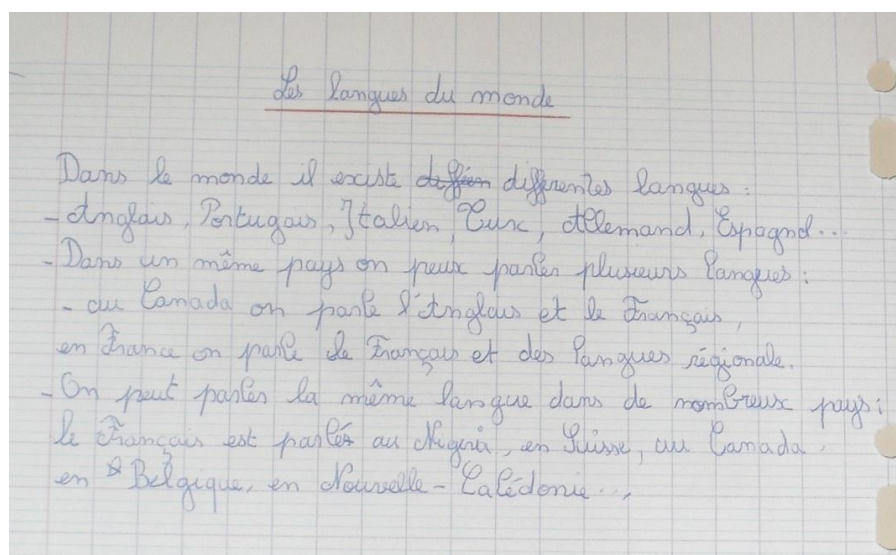 Les langues du monde
Dans le monde il existe différentes langues :
- Anglais, Portugais, Italien, Turc, Allemand, Espagnol...
- Dans un même pays on peux parler plusieurs langues :
- au Canada on parle l'Anglais et le Français,
en France on parle le Français et des langues régionale.
- On peut parler la même langue dans de nombreux pays :
le Français est parlé au Nigéria, en Suisse, au Canada.
en Belgique, en Nouvelle-Calédonie...